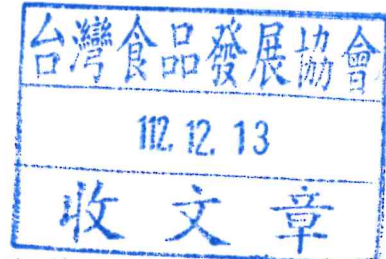 台灣食品發展協會
112. 12. 13
收文章